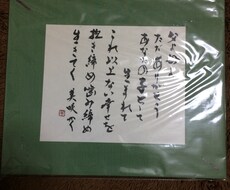 ただありがとう
あなたの子として
生まれて
これ以上ない幸せを
抱き締め噛み締め
生きてく 美咲